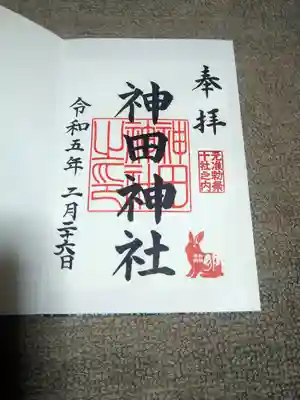 奉拝
元准勅祭
十社之内
卯
神田神社
令和五年 二月二十六日